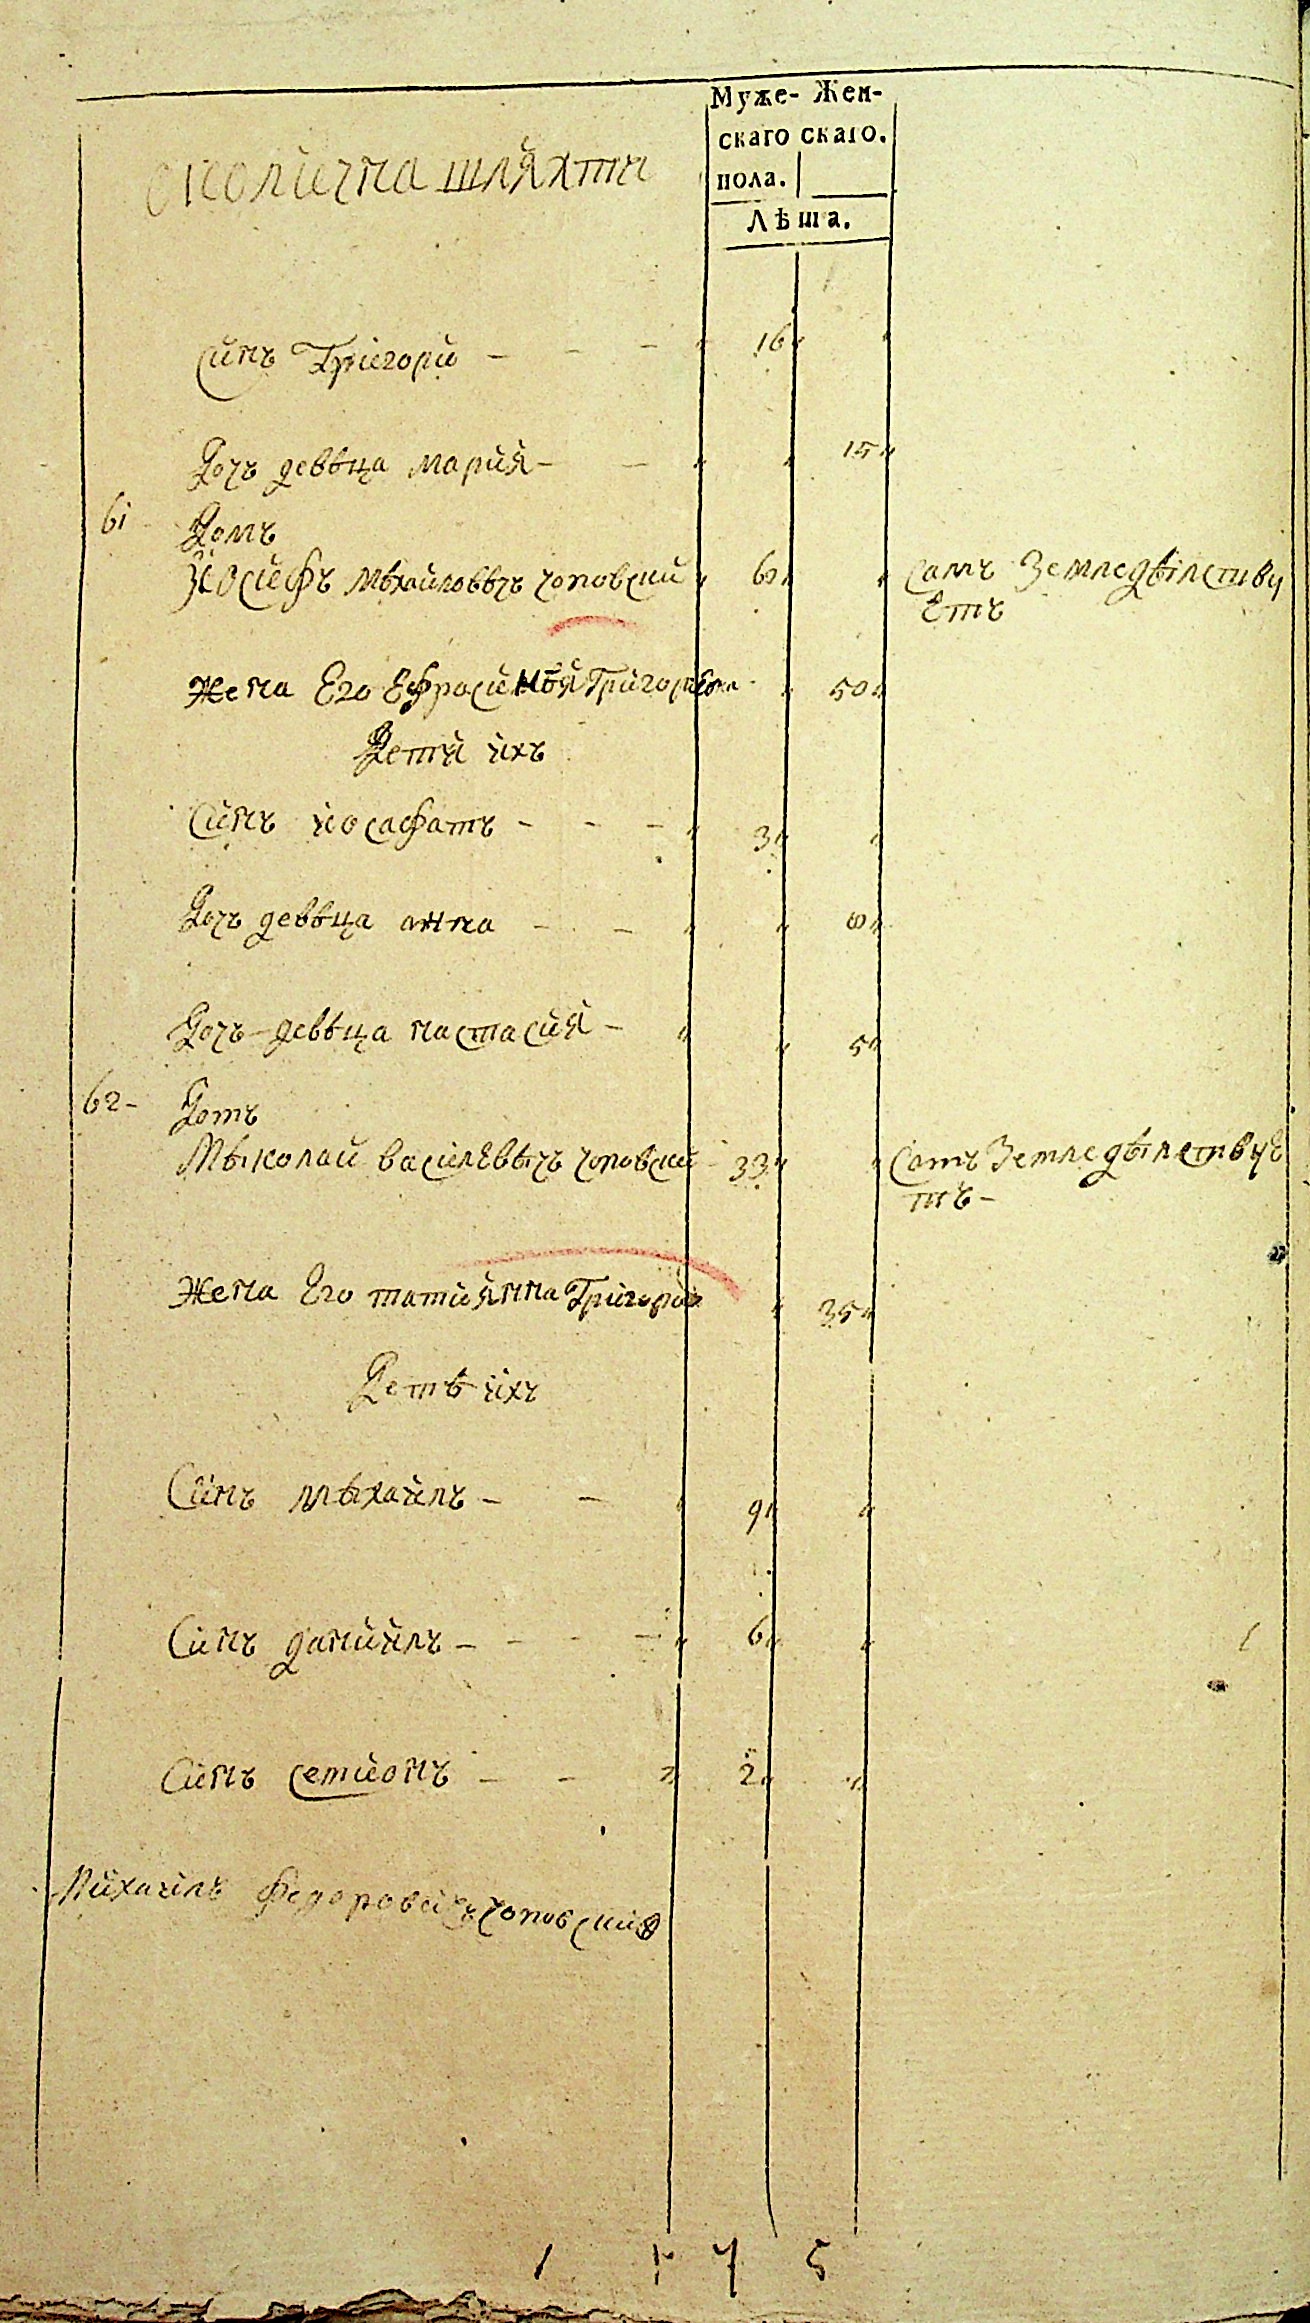 Муже- Жен-
скаго скаго.
пола.
Лѣша.
околична шляхти
синъ Григори - - - " 16 " "
Дочъ девѣца мария - - " " 15 "
61 Домъ
Иосифъ Мѣхайловѣчъ чоповский " 60 " " самъ Земледѣлствy
Етъ
жена Его Ефросиния Григориевна " 50 "
Дети ихъ
Синъ иосафатъ - - - " 3 " "
Дочъ девѣца анна - - " " 8 "
Дочъ девѣца настасия - " " 5 "
62 - Домъ
Мѣколай василевѣчъ чоповский - 33 " " Самъ Земледѣлствуе
тъ -
жена Его татиянна Григориев " 35 "
Детѣ ихъ
Синъ мѣхайлъ - - " 9 " "
Синъ даниилъ - - - - " 6 " "
Синъ семионъ - - " 2 " "
Михаилъ федоровичъ чоповский
1 7 5